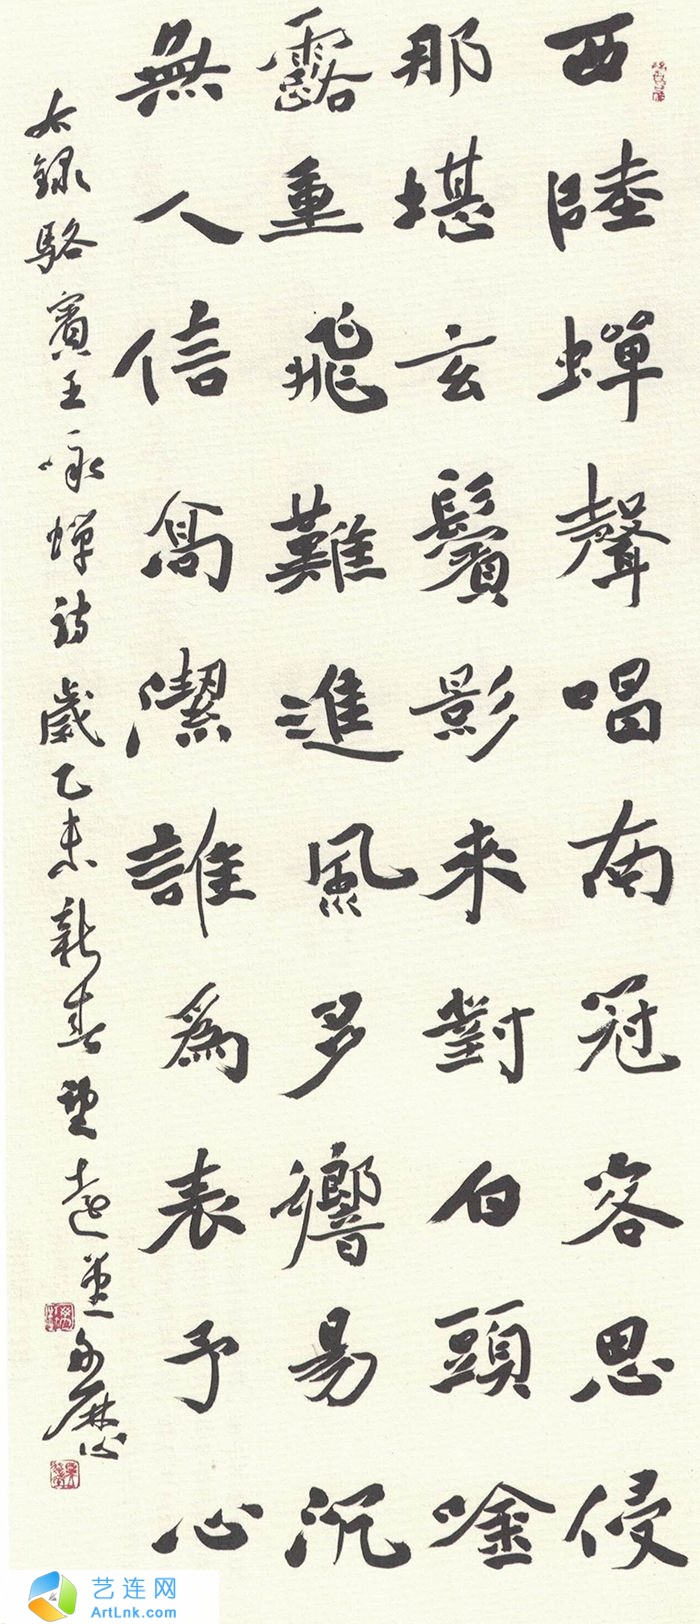 西陸蟬聲唱南冠客思侵
那堪玄鬢影來對白頭唫
露重飛難進風多響易沉
無人信高潔誰為表予心
右錄駱賓王咏蟬詩歲乙未新春
艺连网
ArtLnk.com